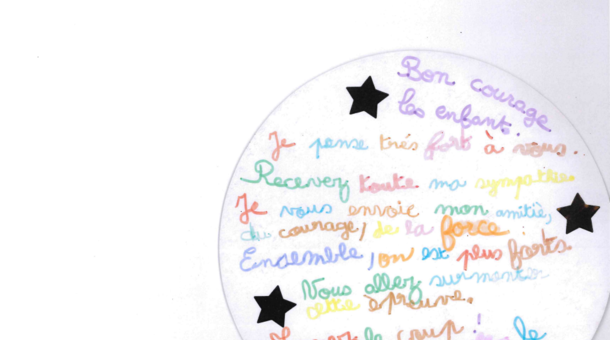 Bon courage
les enfants.
Je pense trés fort à vous.
Recevez toute ma sympathie.
Je vous envoie mon amitié,
du courage, de la force :
Ensemble, on est plus forts.
Vous allez surmonter
cette épreuve.
le coup ! le